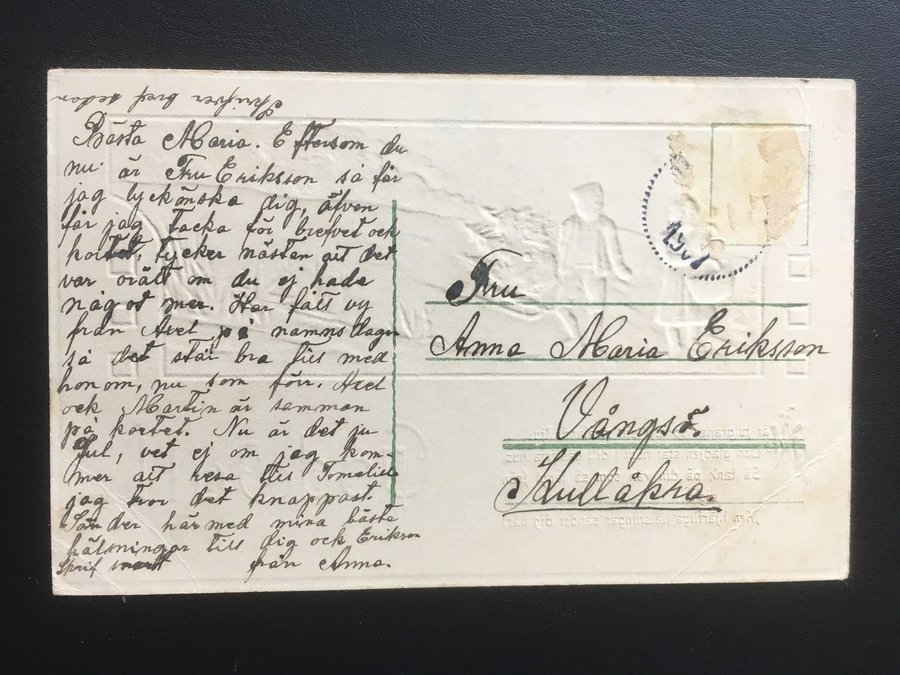 Skrifver bref sedan
Bästa Maria. Eftersom du
nu är Fru Eriksson så får
jag lyckönska dig, äfven
får jag tacka för brefvet ock
kortet, tycker nästen att det
var orätt om du ej hade
något mer. Har fått vy
från Axel på namnsdagen
så det står bra till med
honom, nu som förr. Axel
ock Martin är samman
på kortet. Nu är det ju
Jul, vet ej om jag kom-
mer att resa till Tomelilla
jag tror det knappast.
Sänder här med mina bästa
hälsningar till dig ock Erikson
Skrif snart från Anna.
1908
Fru
Anna Maria Eriksson
Vångsö.
Kullåkra.